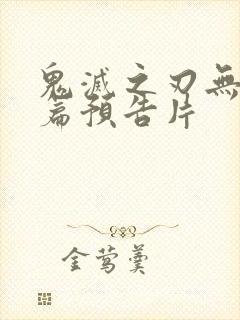 鬼滅之刃無
篇預告片
金鶯羹